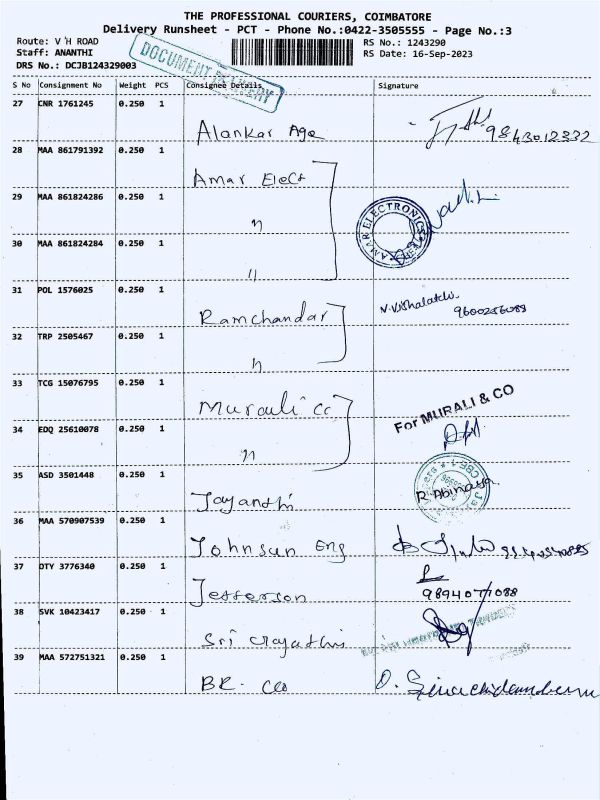 THE PROFESSIONAL COURIERS, COIMBATORE
Delivery Runsheet - PCT - Phone No.:0422-3505555 - Page No.:3
Route: V H ROAD
RS No.: 1243290
Staff: ANANTHI
RS Date: 16-Sep-2023
DRS No.: DCJB124329003
DOCUMENT DELIVERY
S No Consignment No Weight PCS Consignee Details Signature
27 CNR 1761245 0.250 1
Alankar Age 9843012332
28 MAA 861791392 0.250 1
Amar Elect
29 MAA 861824286 0.250 1
"
AMAR ELECTRONICS
30 MAA 861824284 0.250 1
"
31 POL 1576025 0.250 1
Ramchandar N. Vishalatchi
9600256089
32 TRP 2505467 0.250 1
"
33 TCG 15076795 0.250 1
Murauli cc For MURALI & CO
34 EDQ 25610078 0.250 1
"
35 ASD 3501448 0.250 1
Jayanthi R. Abinaya
36 MAA 570907539 0.250 1
Johnsun Eng
37 DTY 3776340 0.250 1
Jefferson
38 SVK 10423417 0.250 1
Sri
39 MAA 572751321 0.250 1
BR. Co